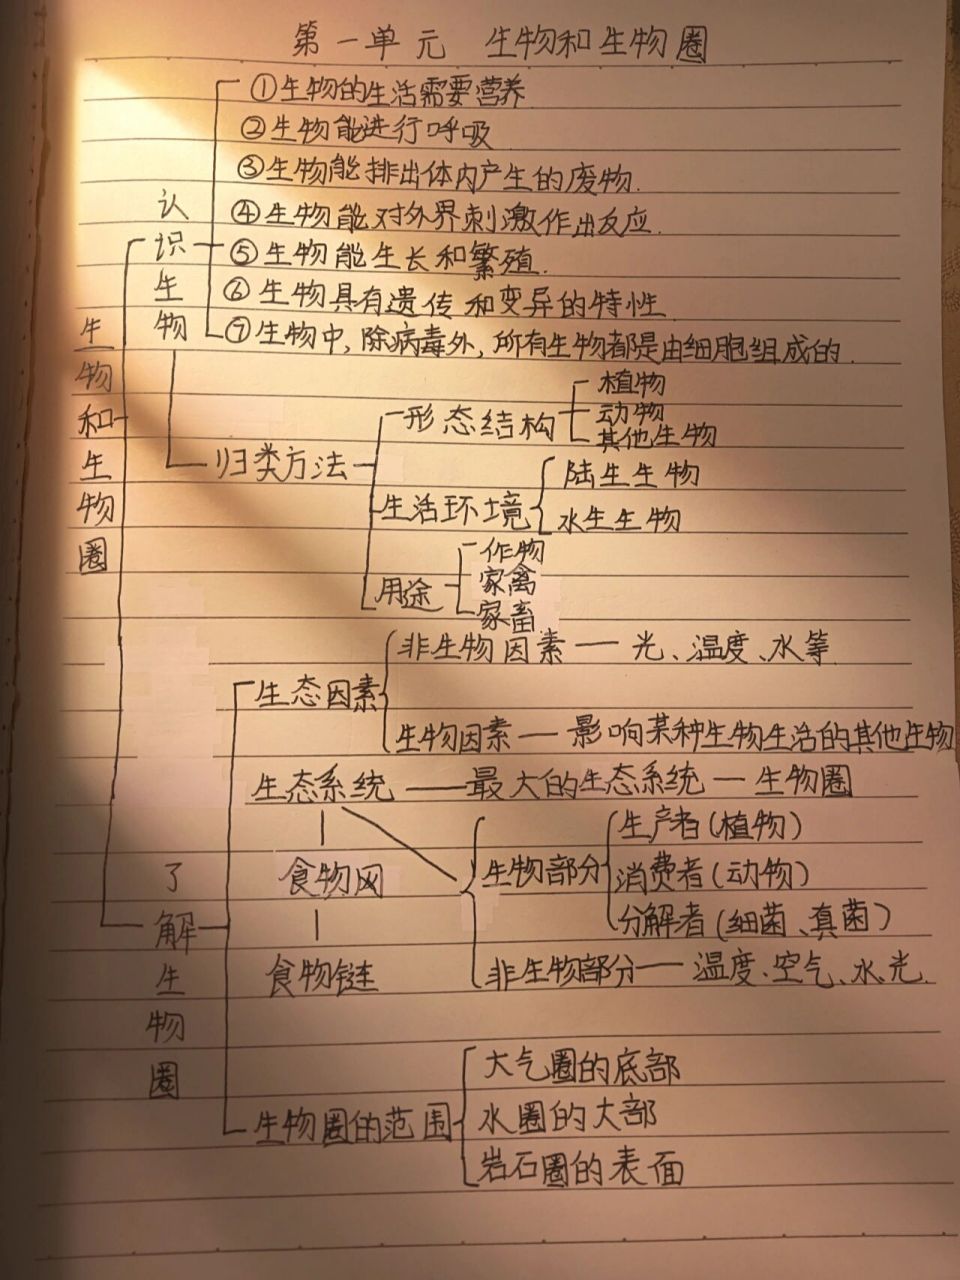 第一单元 生物和生物圈
生物和生物圈
认识生物
①生物的生活需要营养
②生物能进行呼吸
③生物能排出体内产生的废物.
④生物能对外界刺激作出反应.
⑤生物能生长和繁殖.
⑥生物具有遗传和变异的特性.
⑦生物中,除病毒外,所有生物都是由细胞组成的.
归类方法
形态结构
植物
动物
其他生物
生活环境
陆生生物
水生生物
用途
作物
家禽
家畜
了解生物圈
生态因素
非生物因素 — 光、温度、水等
生物因素 — 影响某种生物生活的其他生物
生态系统 — 最大的生态系统 — 生物圈
食物网
食物链
生物部分
生产者(植物)
消费者(动物)
分解者(细菌、真菌)
非生物部分 — 温度、空气、水、光.
生物圈的范围
大气圈的底部
水圈的大部
岩石圈的表面